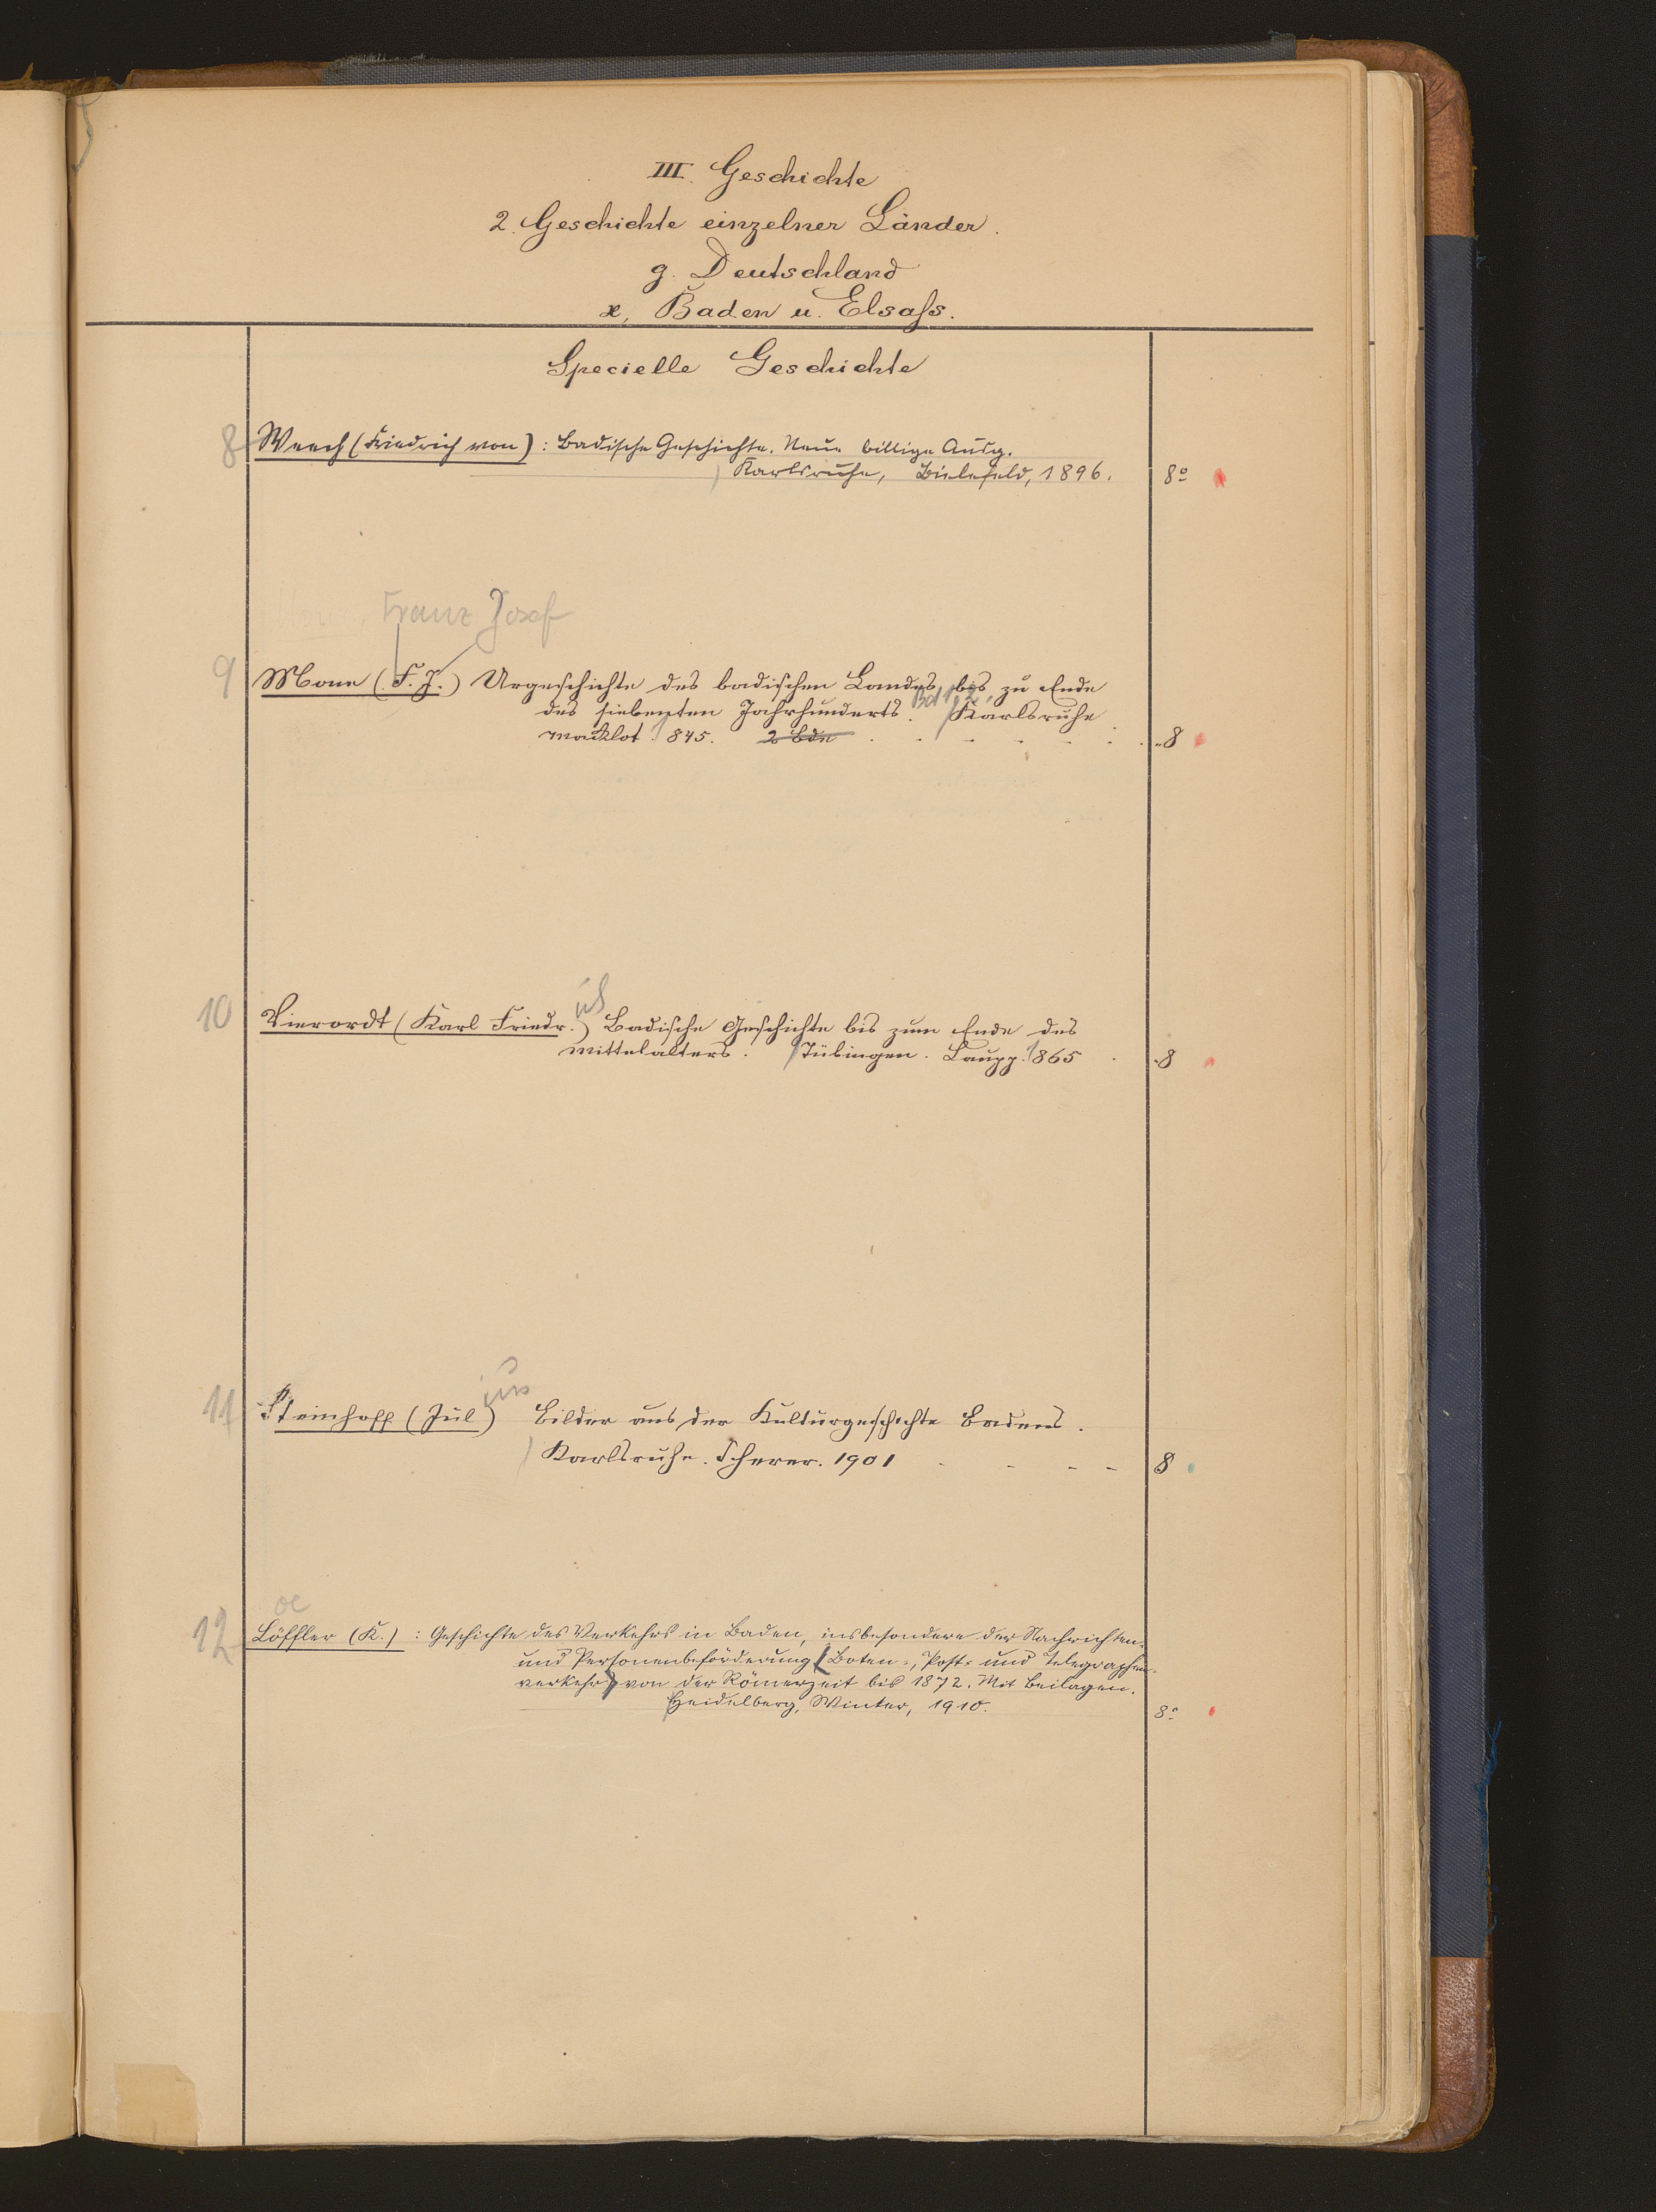 III. Geschichte
2. Geschichte einzelner Länder.
g. Deutschland
æ, Baden u. Elsaſs.
Specielle Geschichte
8 Weech (Friedrich von): Badische Geschichte. Neue billige Ausg.
Karlsruhe, Bielefeld, 1896. 8º
Franz Josef
9 Mone (F. J.) Urgeschichte des badischen Landes bis zu Ende
des siebenten Jahrhunderts. Bd 1, 2, Karlsruhe
Macklot 1845. 2 Bde 8
10 Vierordt (Karl Friedr.) Badische Geschichte bis zum Ende des
Mittelalters. Tübingen. Laupp. 1865 8
ius
11 Steinhoff (Jul) Bilder aus der Kulturgeschichte Badens.
Karlsruhe. Scherer. 1901 8
oe
12 Löffler (K.): Geschichte des Verkehrs in Baden, insbesondere der Nachrichten-
und Personenbeförderung (Boten-, Post- und Telegraphen-
verkehr) von der Römerzeit bis 1872. Mit Beilagen.
Heidelberg, Winter, 1910. 8º